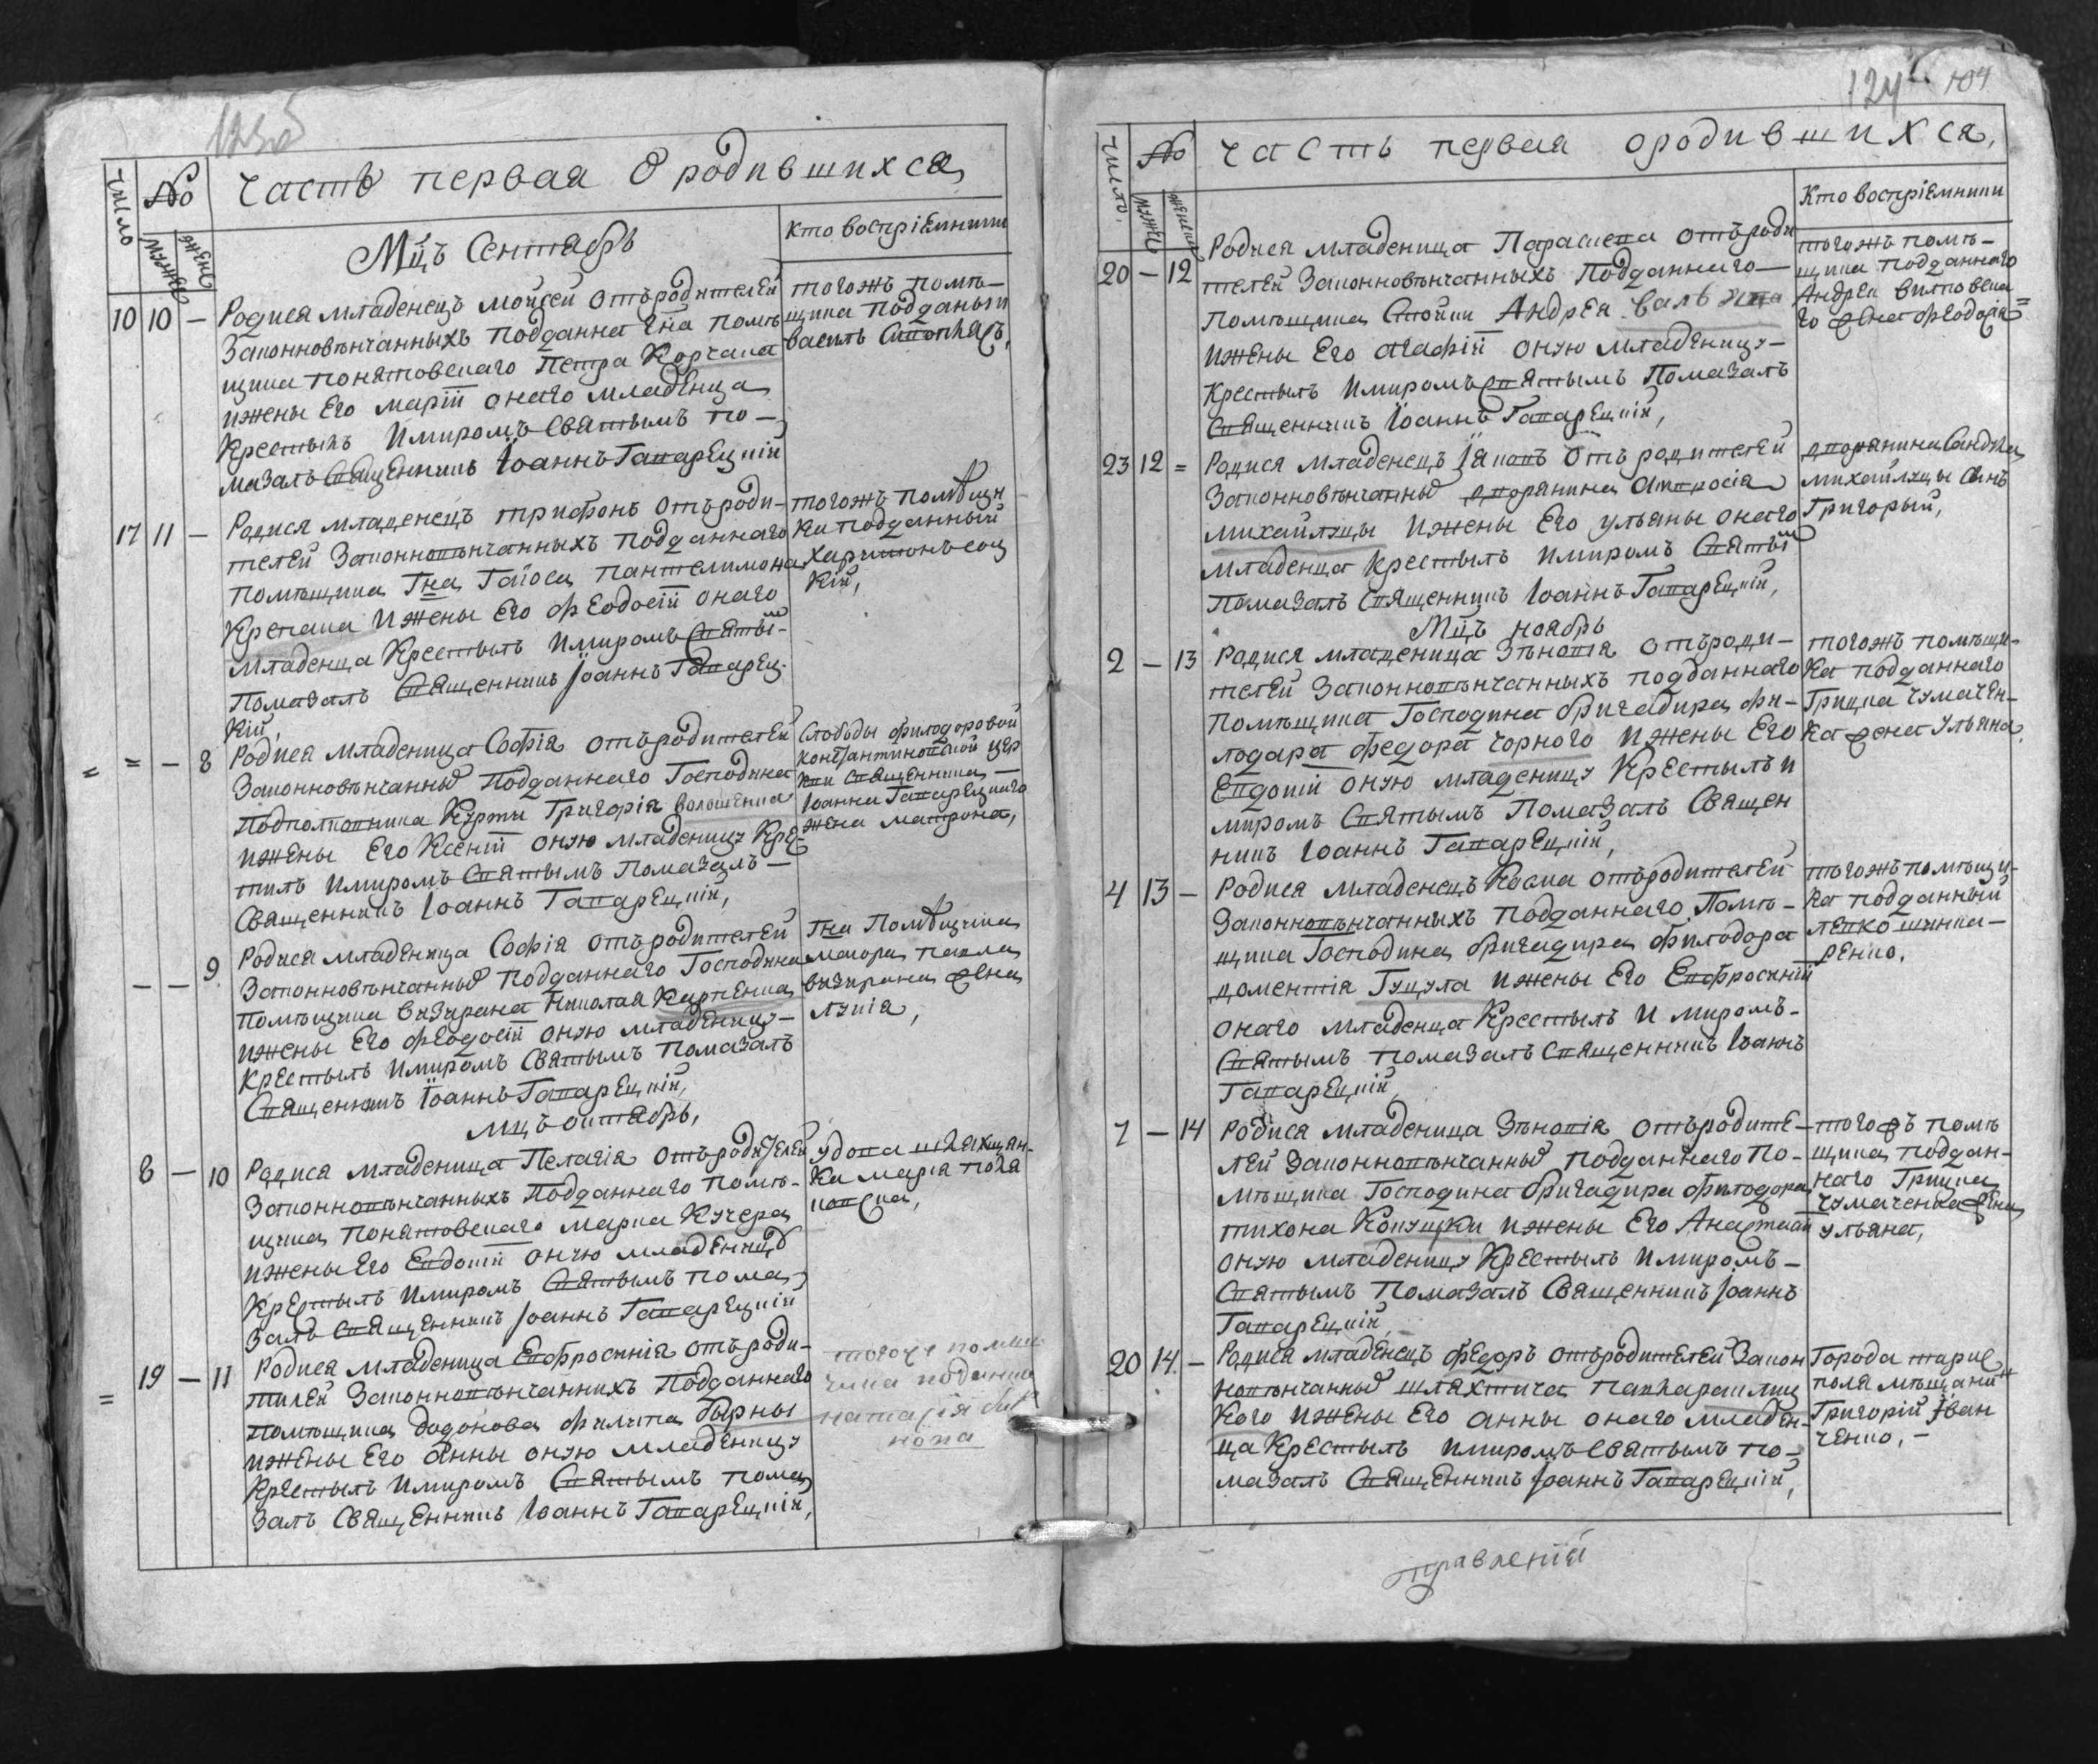 часть первая О родившихся
число
№
мужеск
женск
кто воспріемники
Мцъ Сентябрь
10 10 — Родися младенецъ Мойсей отъ родителей
законновѣнчанныхъ подданна гна помѣ
щика понятовскаго Петра Корчака
и жены Его Маріи онаго младенца
Крестилъ и миромъ святымъ по—
мазалъ Священникъ Іоаннъ Гапарецкій
тогожъ помѣ—
щика подданый
василь
17 11 — Родися младенецъ трифонъ отъ роди—
телей Законновѣнчанныхъ подданнаго
помѣщика Гна Гайоса пантелимона
Крекана и жены Его феодосіи онаго
младенца Крестилъ и миромъ святы—
помазалъ Священникъ Іоаннъ Гапарец
кій,
тогожъ помѣщи
ка подданный
Харитонъ соц
кій,
= = — 8 Родися младеница Софія отъ родителей
Законновѣнчанны подданнаго Господина
подполковника Курты Григорія волошенка
и жены Его Ксеніи оную младеницу Кре—
тилъ и миромъ святымъ помазалъ —
Священникъ Іоаннъ Гапарецкій,
Слободы филодоровой
константиновской цер
кви священника —
Іоанна Гапарецкого
жена матрона,
— — 9 Родися младеница Софія отъ родителей
Законновѣнчанны подданнаго Господина
помѣщика визирана Николая Карпенка
и жены Его феодосіи оную младеницу—
Крестилъ и миромъ святымъ помазалъ
Священникъ Іоаннъ Гапарецкій,
гна Помѣщика
маіора павла
визирана жена
лукія,
мцъ октябрь,
8 — 10 Родися младеница Пелагія отъ родителей
Законновѣнчанныхъ подданнаго помѣ—
щика понятовскаго марка Кучера
и жены Его Евдокіи оную младеницу
Крестилъ и миромъ святымъ пома—
залъ Священникъ Іоаннъ Гапарецкій
удова шляхцян—
ка марія поля
ковская,
= 19 — 11 Родися младеница Евфросинія отъ роди—
тилей Законновѣнчаннихъ подданнаго
помѣщика додонова филипа бырны
и жены Его Анны оную младеницу
Крестилъ и миромъ святымъ пома
залъ Священникъ Іоаннъ Гапарецкій,
124 104
число.
№
мужеск
женск
часть первая о родившихся,
кто воспріемники
20 — 12 Родися младеница Параскева отъ роди
телей Законновѣнчанныхъ подданнаго —
помѣщика Стойки Андрея
и жены Его Агафіи оную младеницу—
Крестилъ и миромъ святымъ помазалъ
Священникъ Іоаннъ Гапарецкій,
тогожъ помѣ—
щика подданнаго
Андрея витковска=
го жена феодосія
23 12 = Родися младенецъ Іаковъ отъ родителей
Законновѣнчанны дворянина Амвросія
михайлуцы и жены Его ульяны онаго
младенца Крестилъ и миромъ святы
помазалъ Священникъ Іоаннъ Гапарецкій,
дворянина Сандула
михайлуцы сынъ
Григорый,
Мцъ ноябрь
2 — 13 Родися младеница Зѣновія отъ роди—
телей Законновѣнчанныхъ подданнаго
помѣщика Господина бригадира фи—
лодара федора чорного и жены Его
Евдокіи оную младеницу Крестилъ и
миромъ святымъ помазалъ Священ
никъ Іоаннъ Гапарецкій,
тогожъ помѣщи—
ка подданнаго
Грицка Чумачен—
ка жена ульяна
4 13 — Родися младенецъ Косма отъ родителей
Законновѣнчанныхъ подданнаго помѣ—
щика Господина бригадира филодора
доментія Гуцула и жены Его Евфросиніи
онаго младенца Крестилъ и миромъ—
святымъ помазалъ Священникъ Іоаннъ
Гапарецкій,
тогожъ помѣщи—
ка подданный
левко шинка—
ренко,
7 — 14 Родися младеница Зѣновія отъ родите—
лей Законновѣнчанны подданнаго по—
мѣщика Господина бригадира филодора
тихона Копущки и жены Его Анастасіи
оную младеницу Крестилъ и миромъ—
святымъ помазалъ Священникъ Іоаннъ
Гапарецкій,
тогожъ помѣ
щика поддан—
наго Грицка
чумаченка жена
ульяна,
20 14 — Родися младенецъ федоръ отъ родителей Закон
новѣнчанны шляхтича
кого и жены Его анны онаго младен—
ца Крестилъ и миромъ святымъ по—
мазалъ Священникъ Іоаннъ Гапарецкій,
Города тирас
поля мѣщанин
Григорій Іван
ченко, —
правленія